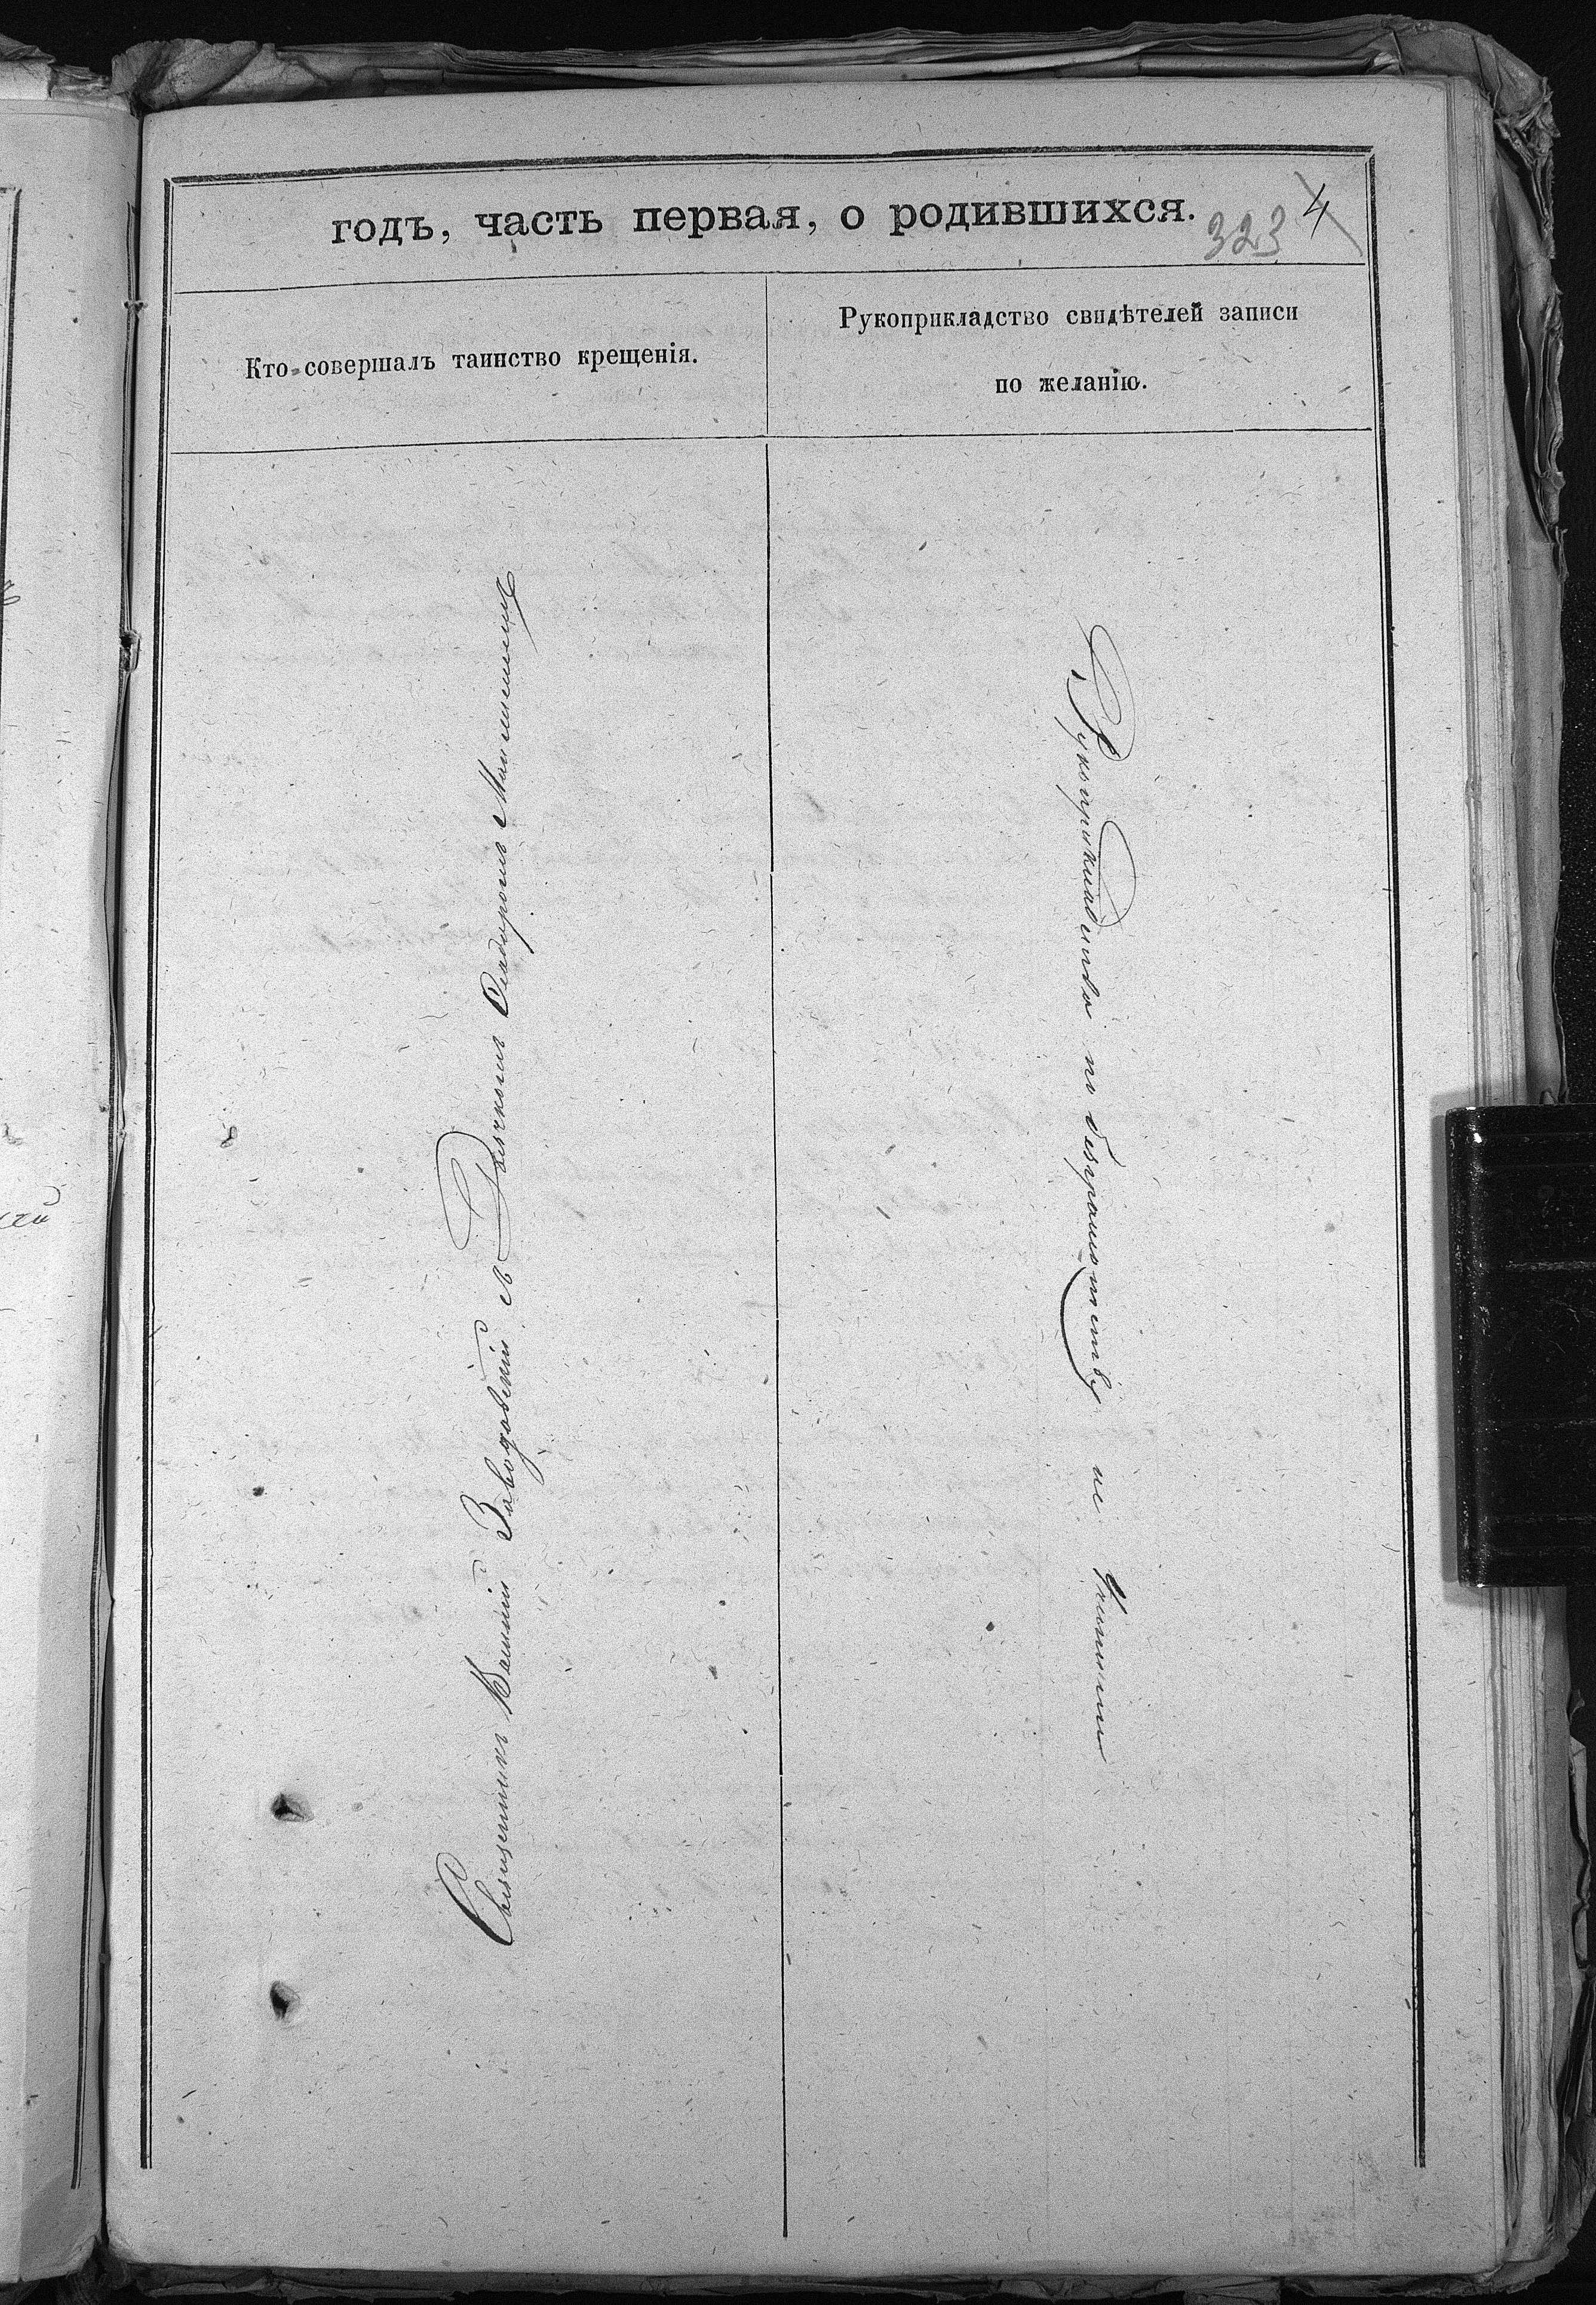 годъ, часть первая, о родившихся.
323 4
Кто совершалъ таинство крещенія.
Рукоприкладство свидѣтелей записи
по желанію.
Священникъ Василій Заводовскій съ Дьячкомъ Ѳеодоромъ
Рукоприкладства по безграмотству не учинили